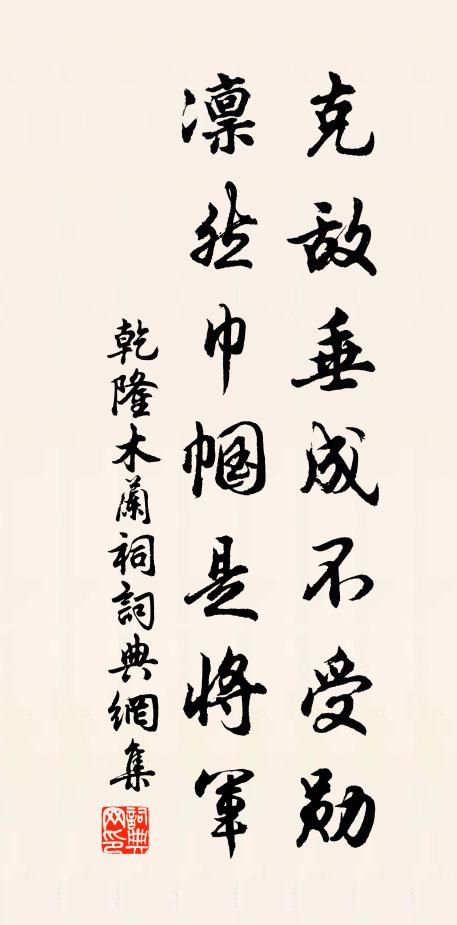 克敌垂成不受勋
凛然巾帼是将军
乾隆木蘭祠詞典網集
詞典网印